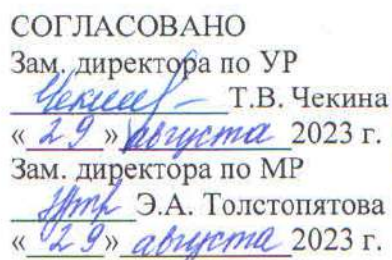 СОГЛАСОВАНО
Зам. директора по УР
Т.В. Чекина
« 29 » августа 2023 г.
Зам. директора по МР
Э.А. Толстопятова
« 29 » августа 2023 г.